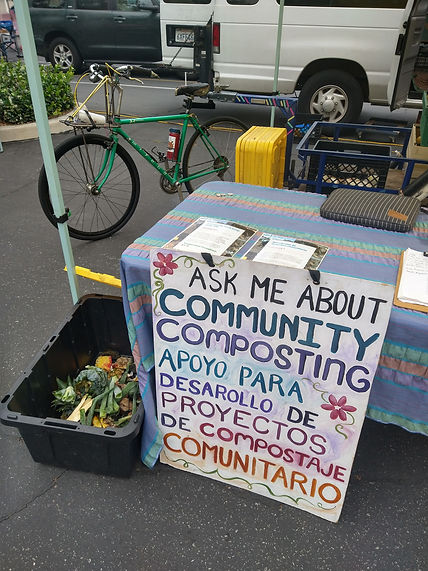 ASK ME ABOUT
COMMUNITY
COMPOSTING
APOYO PARA
DESAROLLO DE
PROYECTOS
DE COMPOSTAJE
COMUNITARIO